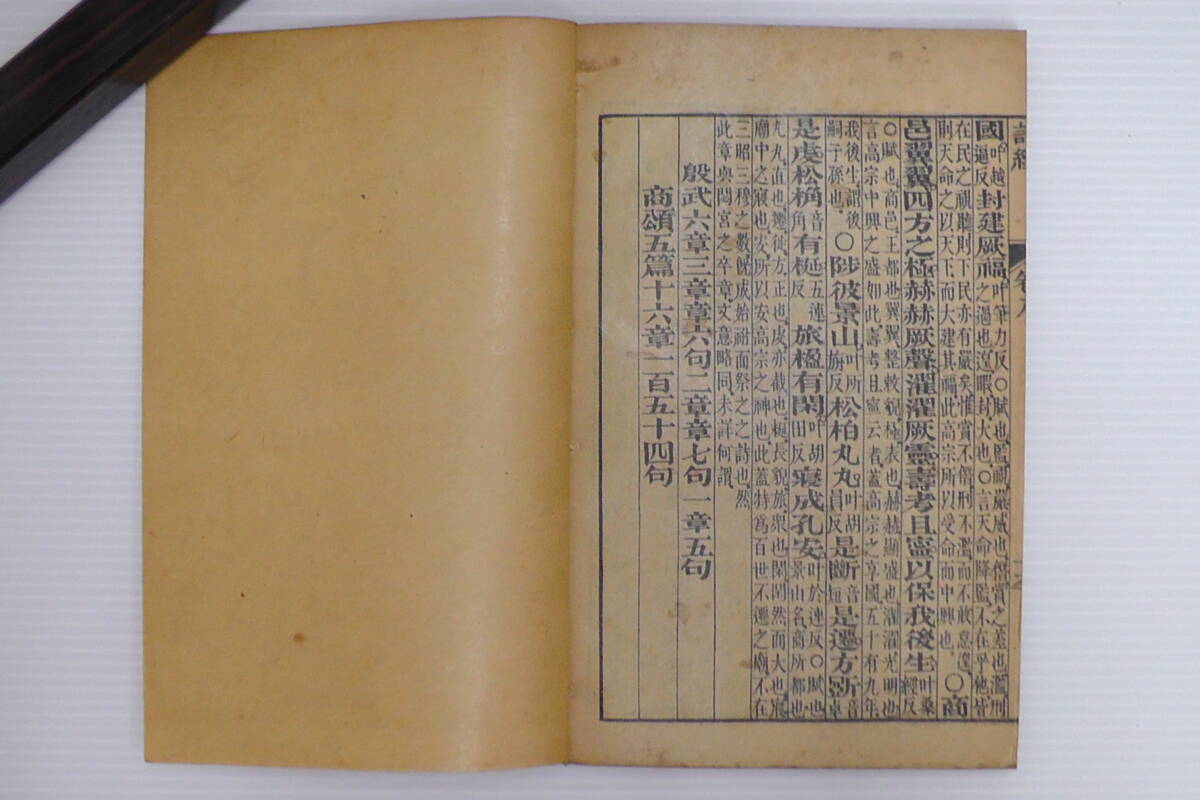 詩經 卷八
國叶越逼反封建厥福叶筆力反○賦也監視嚴威也僭賞之差也濫刑之過也遑暇封大也○言天命降監不在乎他皆
在民之視聽則下民亦有嚴矣惟賞不僭刑不濫而不敢怠遑則天命之以天下而大建其福此高宗所以受命而中興也○商
邑翼翼四方之極赫赫厥聲濯濯厥靈壽考且寧以保我後生叶桑經反
○賦也商邑王都也翼翼整敕貌極表也赫赫顯盛也濯濯光明也言高宗中興之盛如此壽考且寧云者蓋高宗之享國五十有九年
我後生謂後嗣子孫也○陟彼景山叶所旃反松柏丸丸叶胡員反是斷音短是遷方斲音卓
是虔松桷音角有梴五連反旅楹有閑叶胡田反寢成孔安叶於連反○賦也景山名商所都也
丸丸直也遷徙方正也虔亦截也梴長貌旅衆也閑閑然而大也寢廟中之寢也安所以安高宗之神也此蓋特爲百世不遷之廟不在
三昭三穆之數旣成始祔而祭之之詩也然此章與閟宮之卒章文意略同未詳何謂
殷武六章三章章六句二章章七句一章五句
商頌五篇十六章一百五十四句